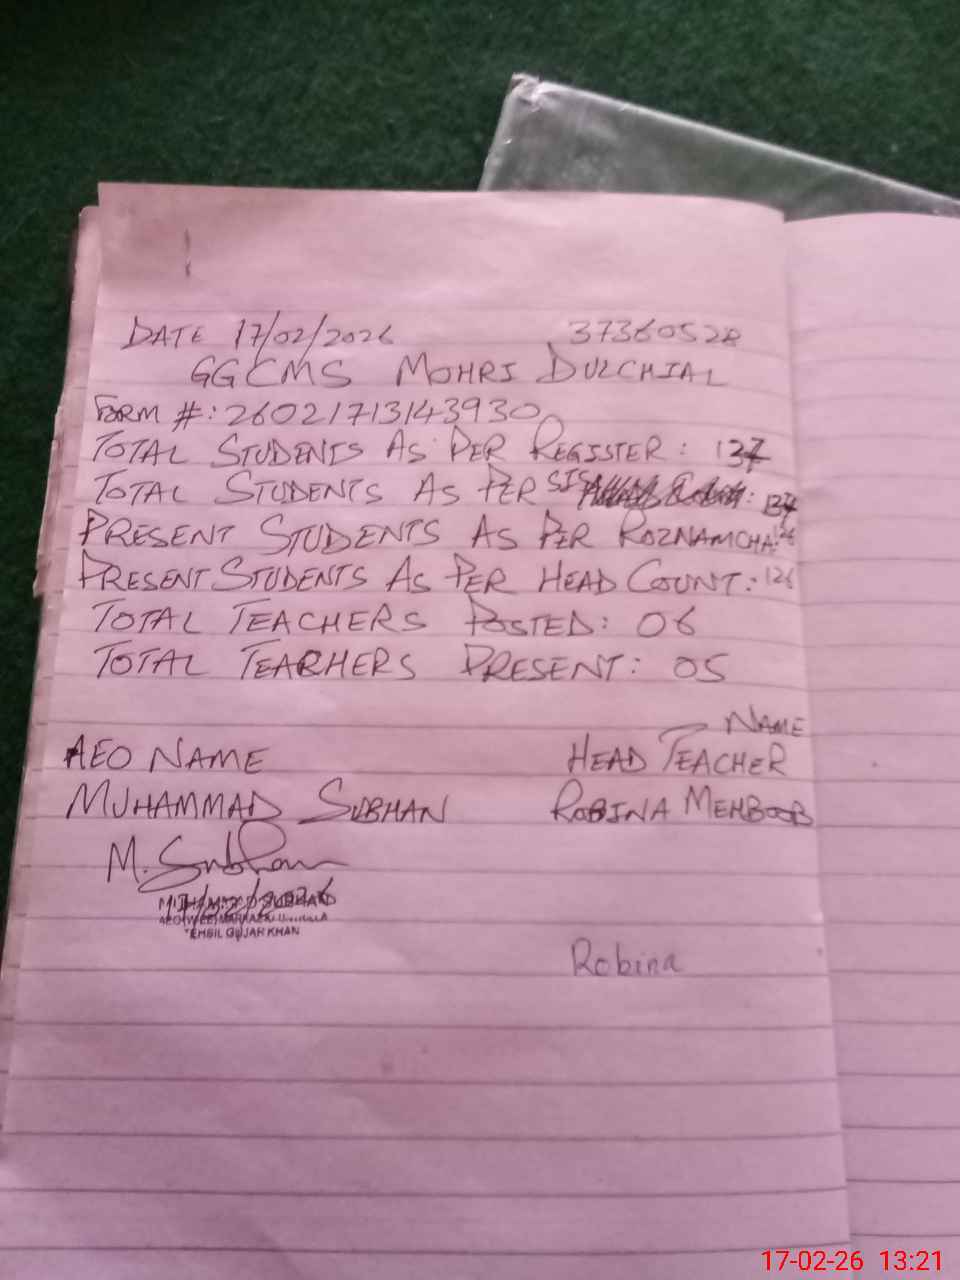 DATE 17/02/2026 37360528
GGCMS MOHRI DULCHIAL
FORM #: 26021713143930
TOTAL STUDENTS AS PER REGISTER: 137
TOTAL STUDENTS AS PER SIS : 137
PRESENT STUDENTS AS PER ROZNAMCHA: 126
PRESENT STUDENTS AS PER HEAD COUNT: 126
TOTAL TEACHERS POSTED: 06
TOTAL TEACHERS PRESENT: 05
NAME
AEO NAME HEAD TEACHER
MUHAMMAD SUBHAN ROBINA MEHBOOB
M. Subhan
MUHAMMAD SUBHAN
TEHSIL GUJAR KHAN
Robina
17-02-26 13:21